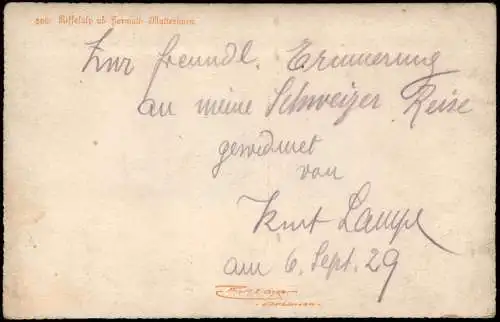 Riffelalp ob Zermatt-Matterhorn
Zur freundl. Erinnerung
an meine Schweizer Reise
gewidmet
von
Kurt Lampe
am 6. Sept. 29